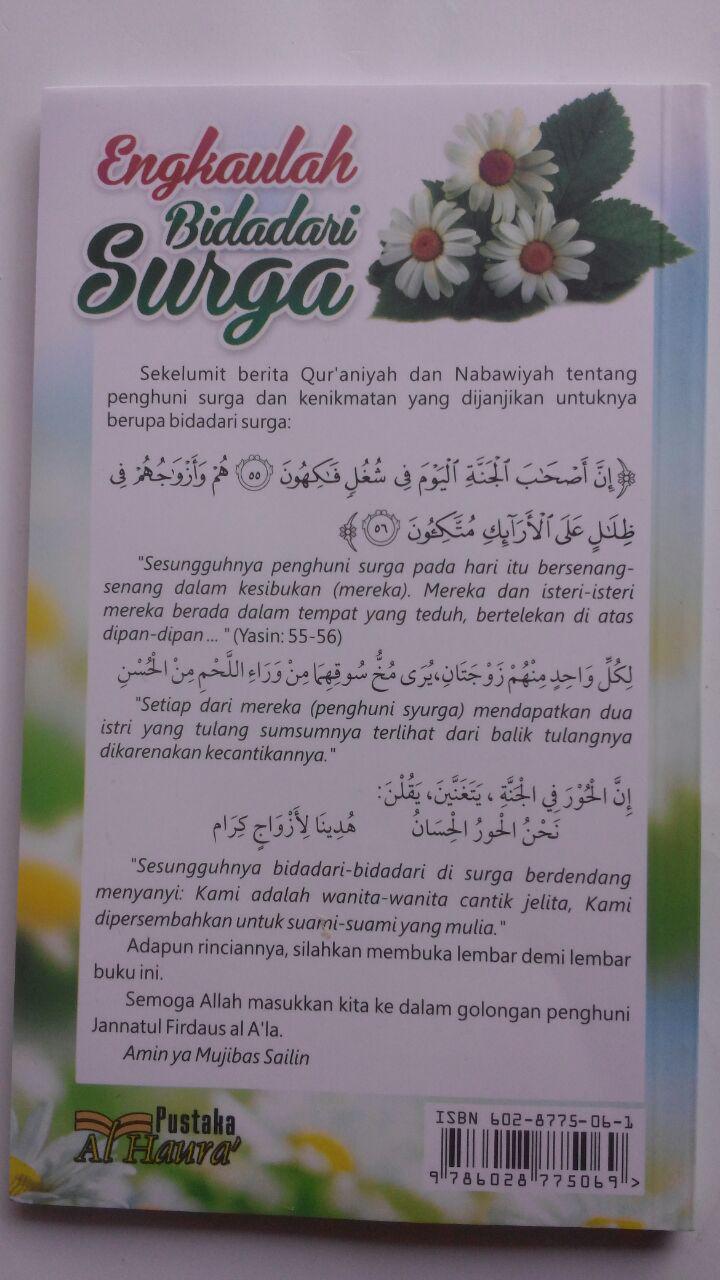 Engkaulah
Bidadari
Surga
Sekelumit berita Qur'aniyah dan Nabawiyah tentang
penghuni surga dan kenikmatan yang dijanjikan untuknya
berupa bidadari surga:
﴿إِنَّ أَصْحَٰبَ ٱلْجَنَّةِ ٱلْيَوْمَ فِى شُغُلٍ فَٰكِهُونَ ۝٥٥ هُمْ وَأَزْوَٰجُهُمْ فِى
ظِلَٰلٍ عَلَى ٱلْأَرَآئِكِ مُتَّكِـُٔونَ ۝٥٦﴾
"Sesungguhnya penghuni surga pada hari itu bersenang-
senang dalam kesibukan (mereka). Mereka dan isteri-isteri
mereka berada dalam tempat yang teduh, bertelekan di atas
dipan-dipan... " (Yasin: 55-56)
لِكُلِّ وَاحِدٍ مِنْهُمْ زَوْجَتَانِ،يُرَى مُخُّ سُوقِهِمَا مِنْ وَرَاءِ اللَّحْمِ مِنْ الْحُسْنِ
"Setiap dari mereka (penghuni syurga) mendapatkan dua
istri yang tulang sumsumnya terlihat dari balik tulangnya
dikarenakan kecantikannya."
إِنَّ الْحُوْرَ فِي الْجَنَّةِ ، يَتَغَنَّيْنَ، يَقُلْنَ:
نَحْنُ الْحورُ الْحِسَانُ هُدِينَا لِأَزْوَاجٍ كِرَام
"Sesungguhnya bidadari-bidadari di surga berdendang
menyanyi: Kami adalah wanita-wanita cantik jelita, Kami
dipersembahkan untuk suami-suami yang mulia."
Adapun rinciannya, silahkan membuka lembar demi lembar
buku ini.
Semoga Allah masukkan kita ke dalam golongan penghuni
Jannatul Firdaus al A'la.
Amin ya Mujibas Sailin
Pustaka
Al Haura'
ISBN 602-8775-06-1
9 786028 775069 >